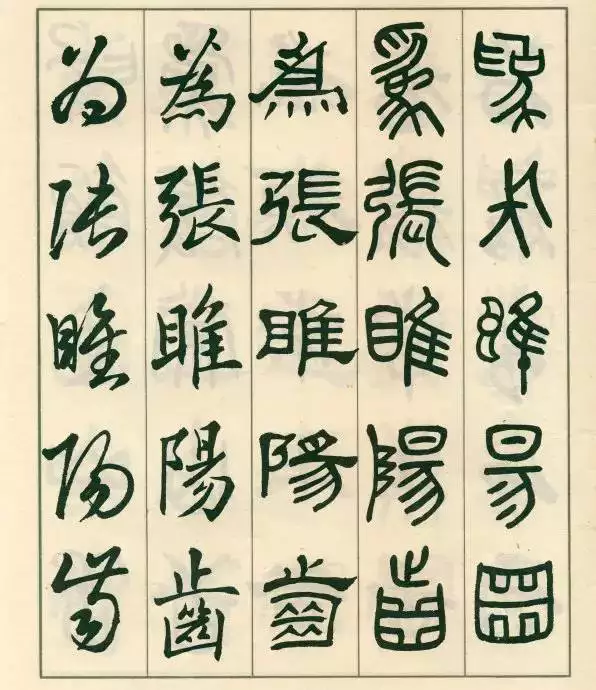 為張睢陽齒
為張睢陽齒
為張睢陽齒
為張睢陽齒
為張睢陽齒